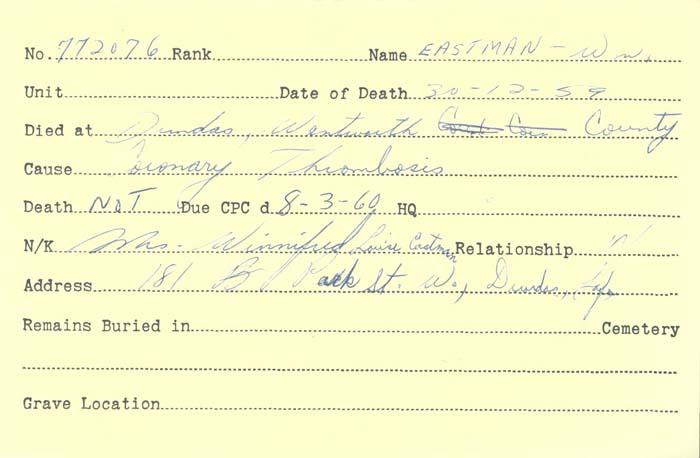 No. 772076 Rank Name EASTMAN - Wm.
Unit Date of Death 30-12-59
Died at Dundas, Wentworth County
Cause Coronary Thrombosis
Death NOT Due CPC d. 8-3-60 HQ
N/K Mrs. Winnifred Louise Eastman Relationship
Address 181 B Park St. W., Dundas,
Remains Buried in Cemetery
Grave Location